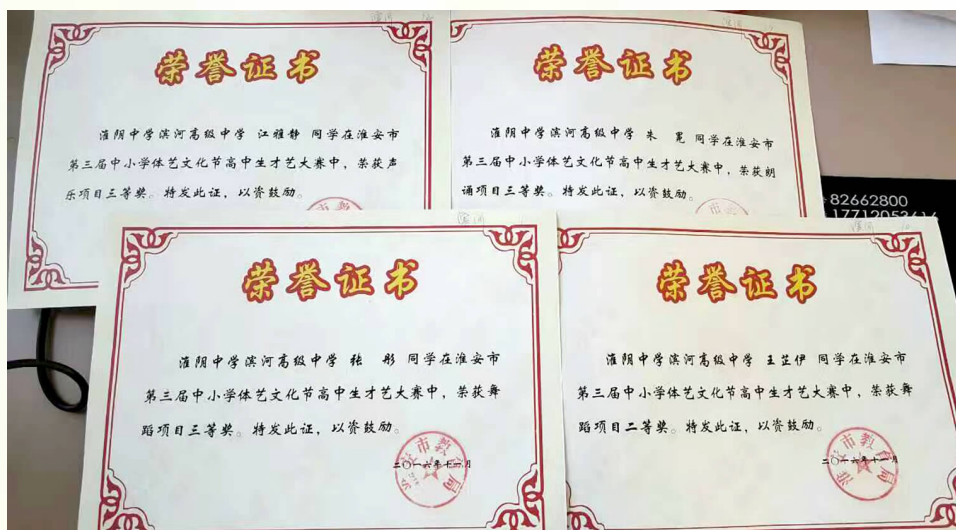 荣誉证书
淮阴中学滨河高级中学 江雅静 同学在淮安市
第三届中小学体艺文化节高中生才艺大赛中，荣获声
乐项目三等奖。特发此证，以资鼓励。
荣誉证书
淮阴中学滨河高级中学 朱 冕 同学在淮安市
第三届中小学体艺文化节高中生才艺大赛中，荣获朗
诵项目三等奖。特发此证，以资鼓励。
82662800
荣誉证书
淮阴中学滨河高级中学 张 彤 同学在淮安市
第三届中小学体艺文化节高中生才艺大赛中，荣获舞
蹈项目三等奖。特发此证，以资鼓励。
二〇一六年十一月
荣誉证书
淮阴中学滨河高级中学 王芷伊 同学在淮安市
第三届中小学体艺文化节高中生才艺大赛中，荣获舞
蹈项目二等奖。特发此证，以资鼓励。
二〇一六年十一月